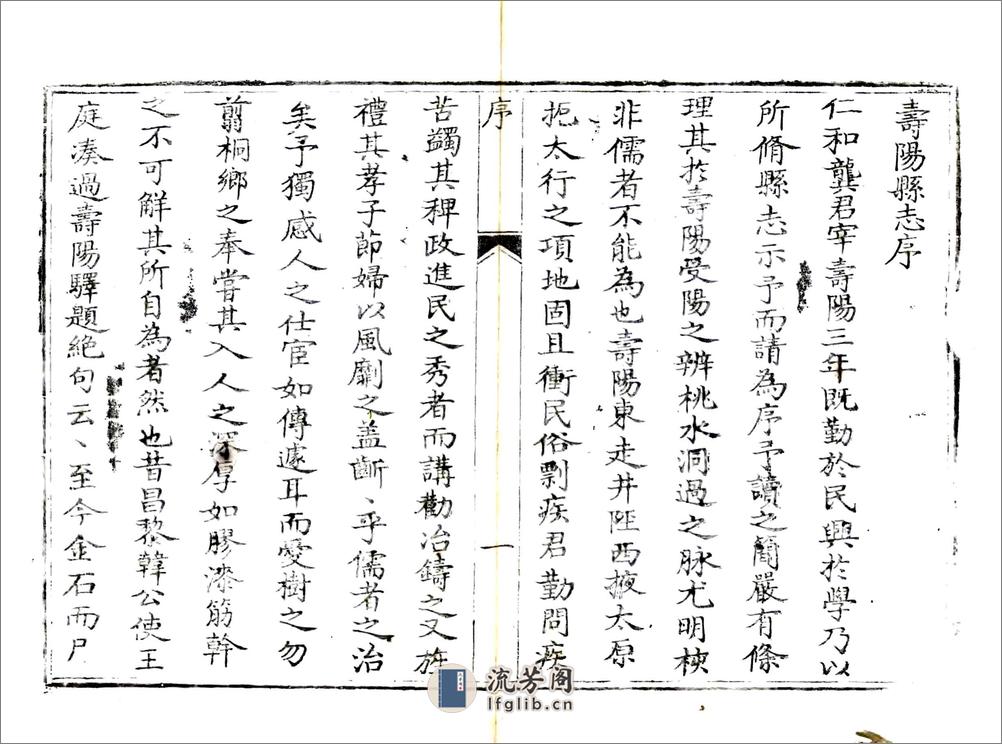 壽陽縣志序
仁和龔君宰壽陽三年既勤於民興於學乃以
所脩縣志示予而請為序予讀之簡嚴有條
理其於壽陽受陽之辨桃水洞過之脉尤明核
非儒者不能為也壽陽東走井陘西掖太原
扼太行之項地固且衝民俗剽疾君勤問疾
序
一
苦蠲其稗政進民之秀者而講勸冶鑄之又旌
禮其孝子節婦以風劘之盖斷、乎儒者之治
矣予獨感人之仕宦如傳遽耳而愛樹之勿
翦桐鄉之奉嘗其入人之深厚如膠漆筋幹
之不可解其所自為者然也昔昌黎韓公使王
庭湊過壽陽驛題絶句云、至今金石而尸
流芳阁
lfglib.cn